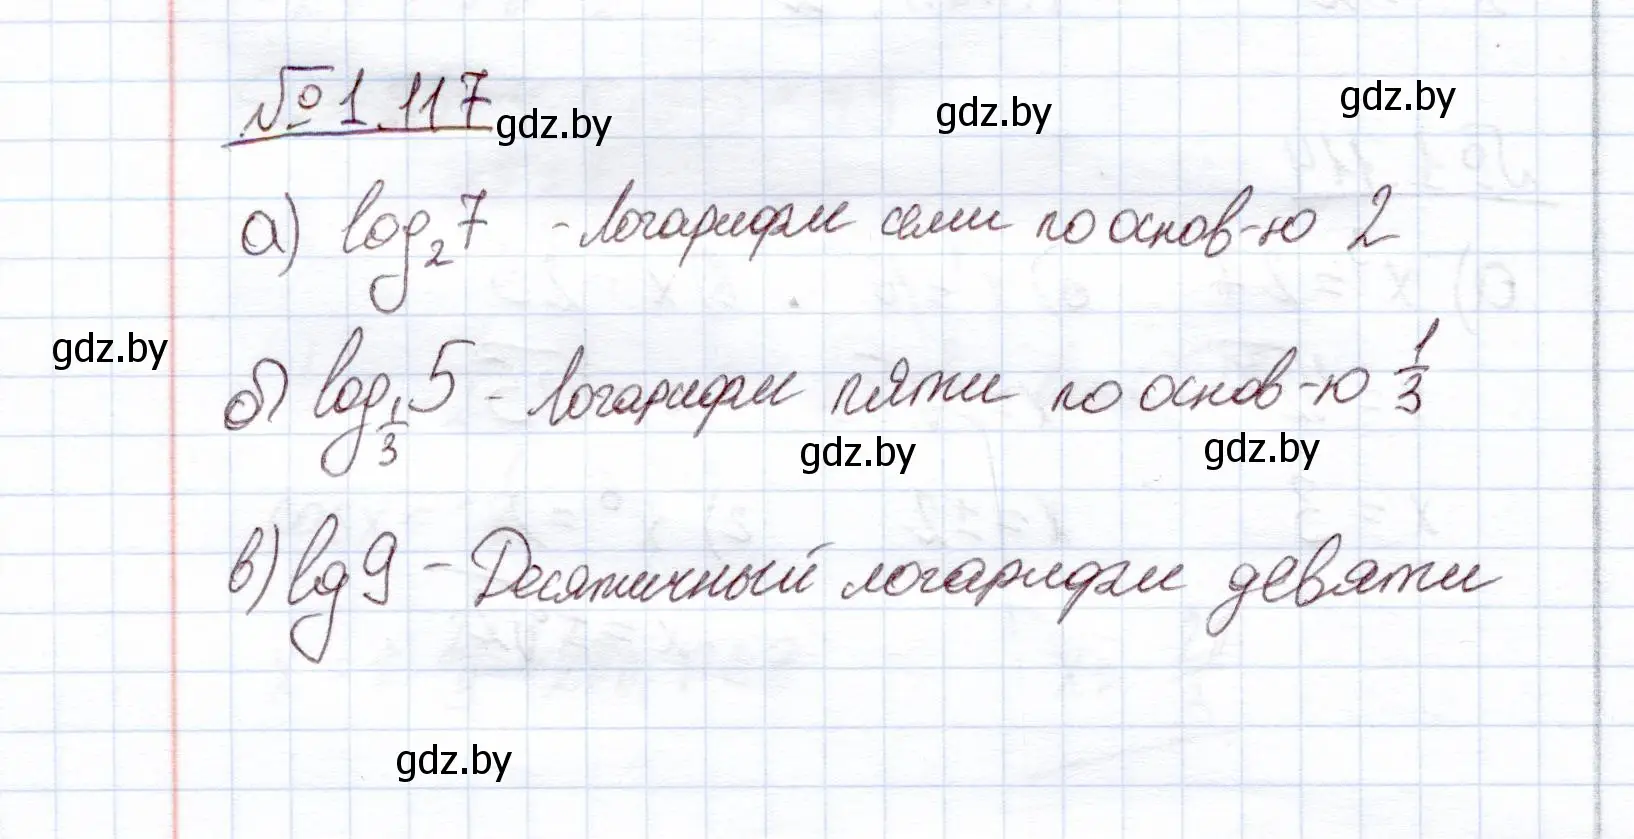 № 1.117
gdz.by
gdz.by
gdz.by
а) log₂7 - логарифм семи по основ-ю 2
gdz.by
б) log_{1/3} 5 - логарифм пяти по основ-ю 1/3
gdz.by
gdz.by
в) lg 9 - Десятичный логарифм девяти
gdz.by